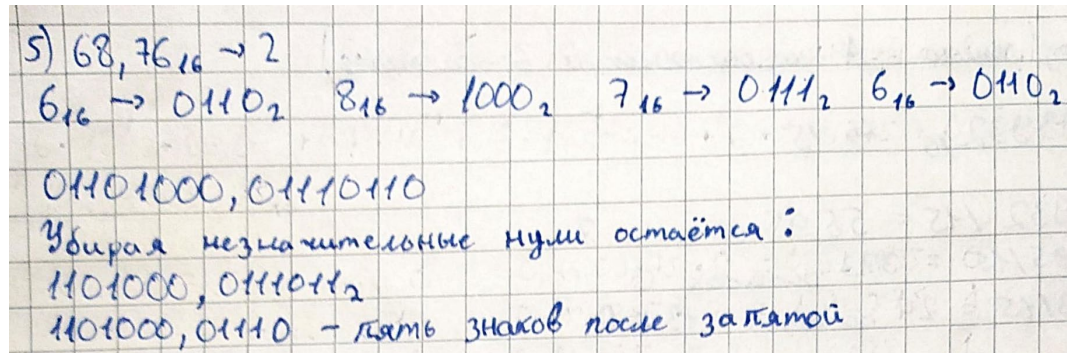 5) 68,76₁₆ → 2
6₁₆ → 0110₂ 8₁₆ → 1000₂ 7₁₆ → 0111₂ 6₁₆ → 0110₂
01101000,01110110
Убирая незначительные нули остаётся:
1101000,0111011₂
1101000,01110 - пять знаков после запятой